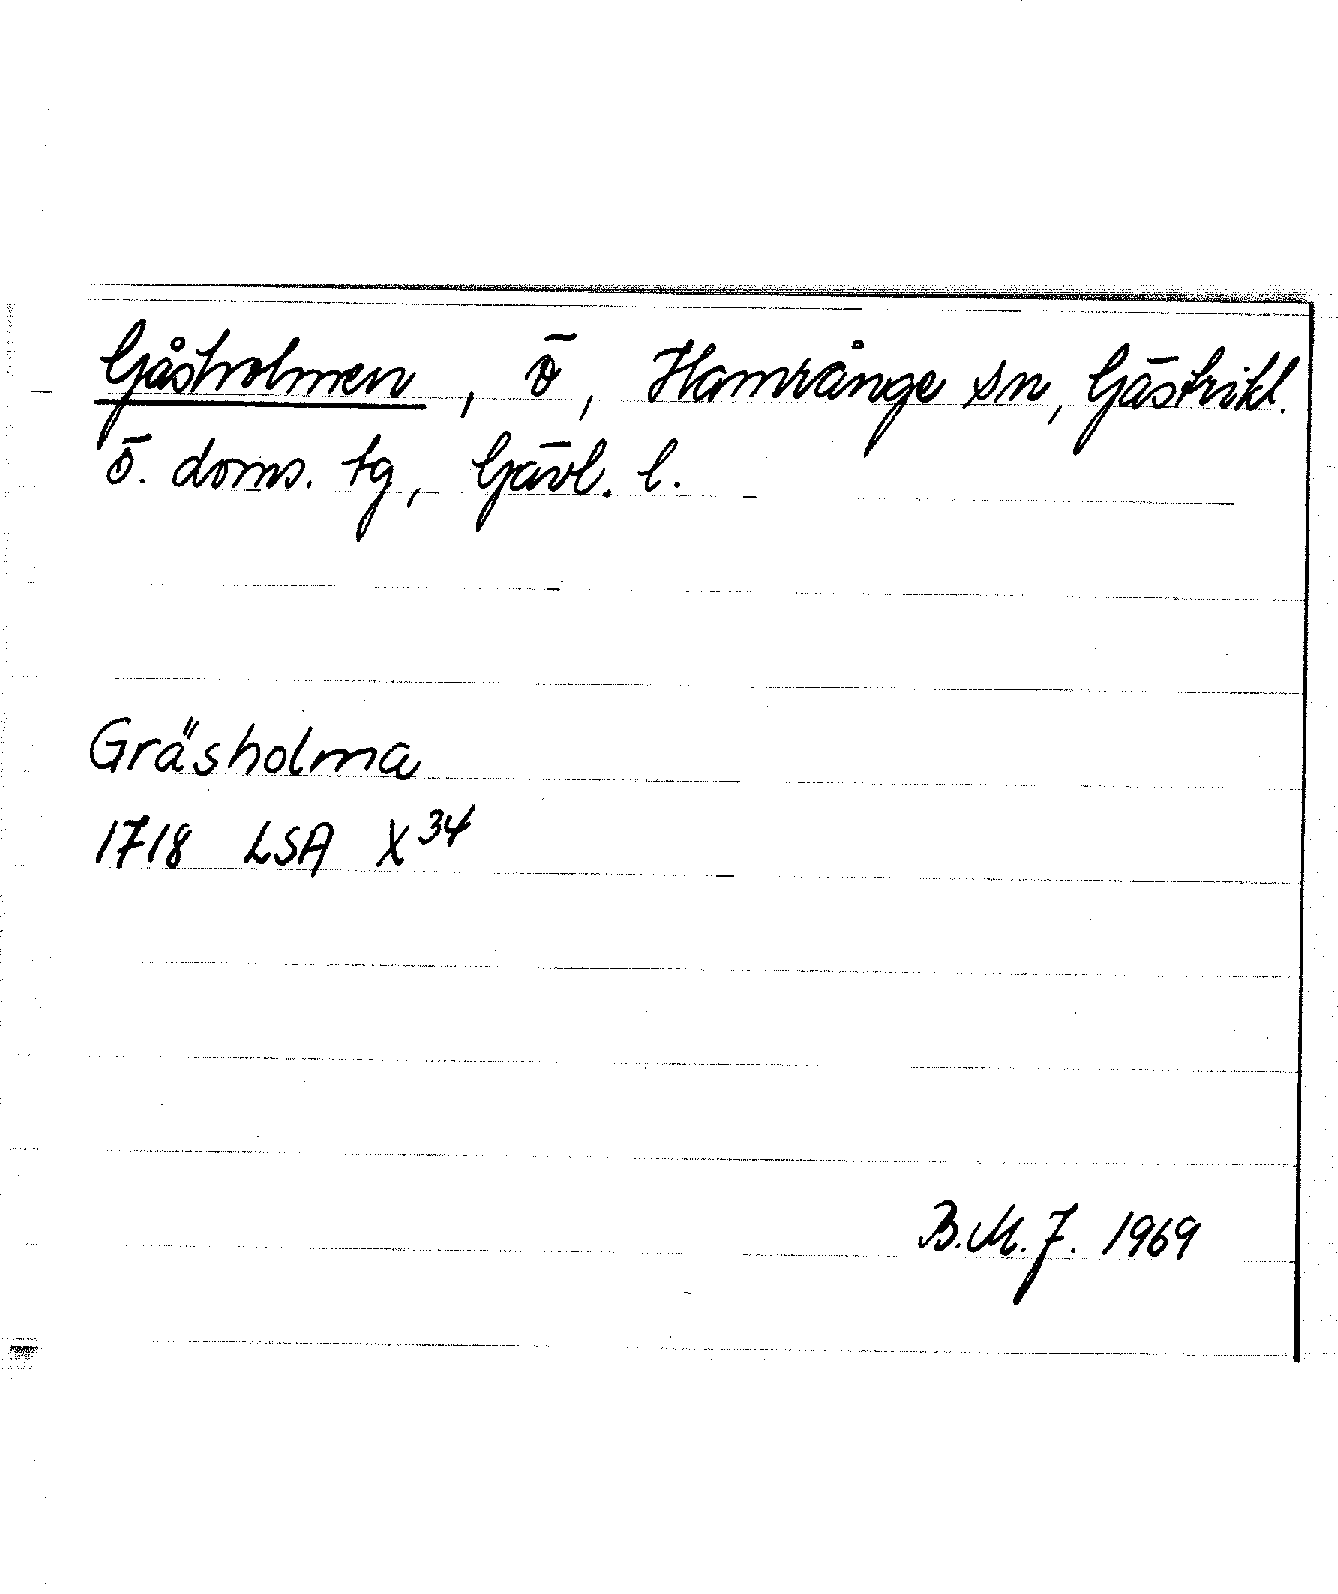 Gåsholmen, ö, Hamrånge sn, Gästrikl.
ö. doms. tg, Gävl. l.
Gräsholma
1718 LSA X³⁴
B.M.J. 1969